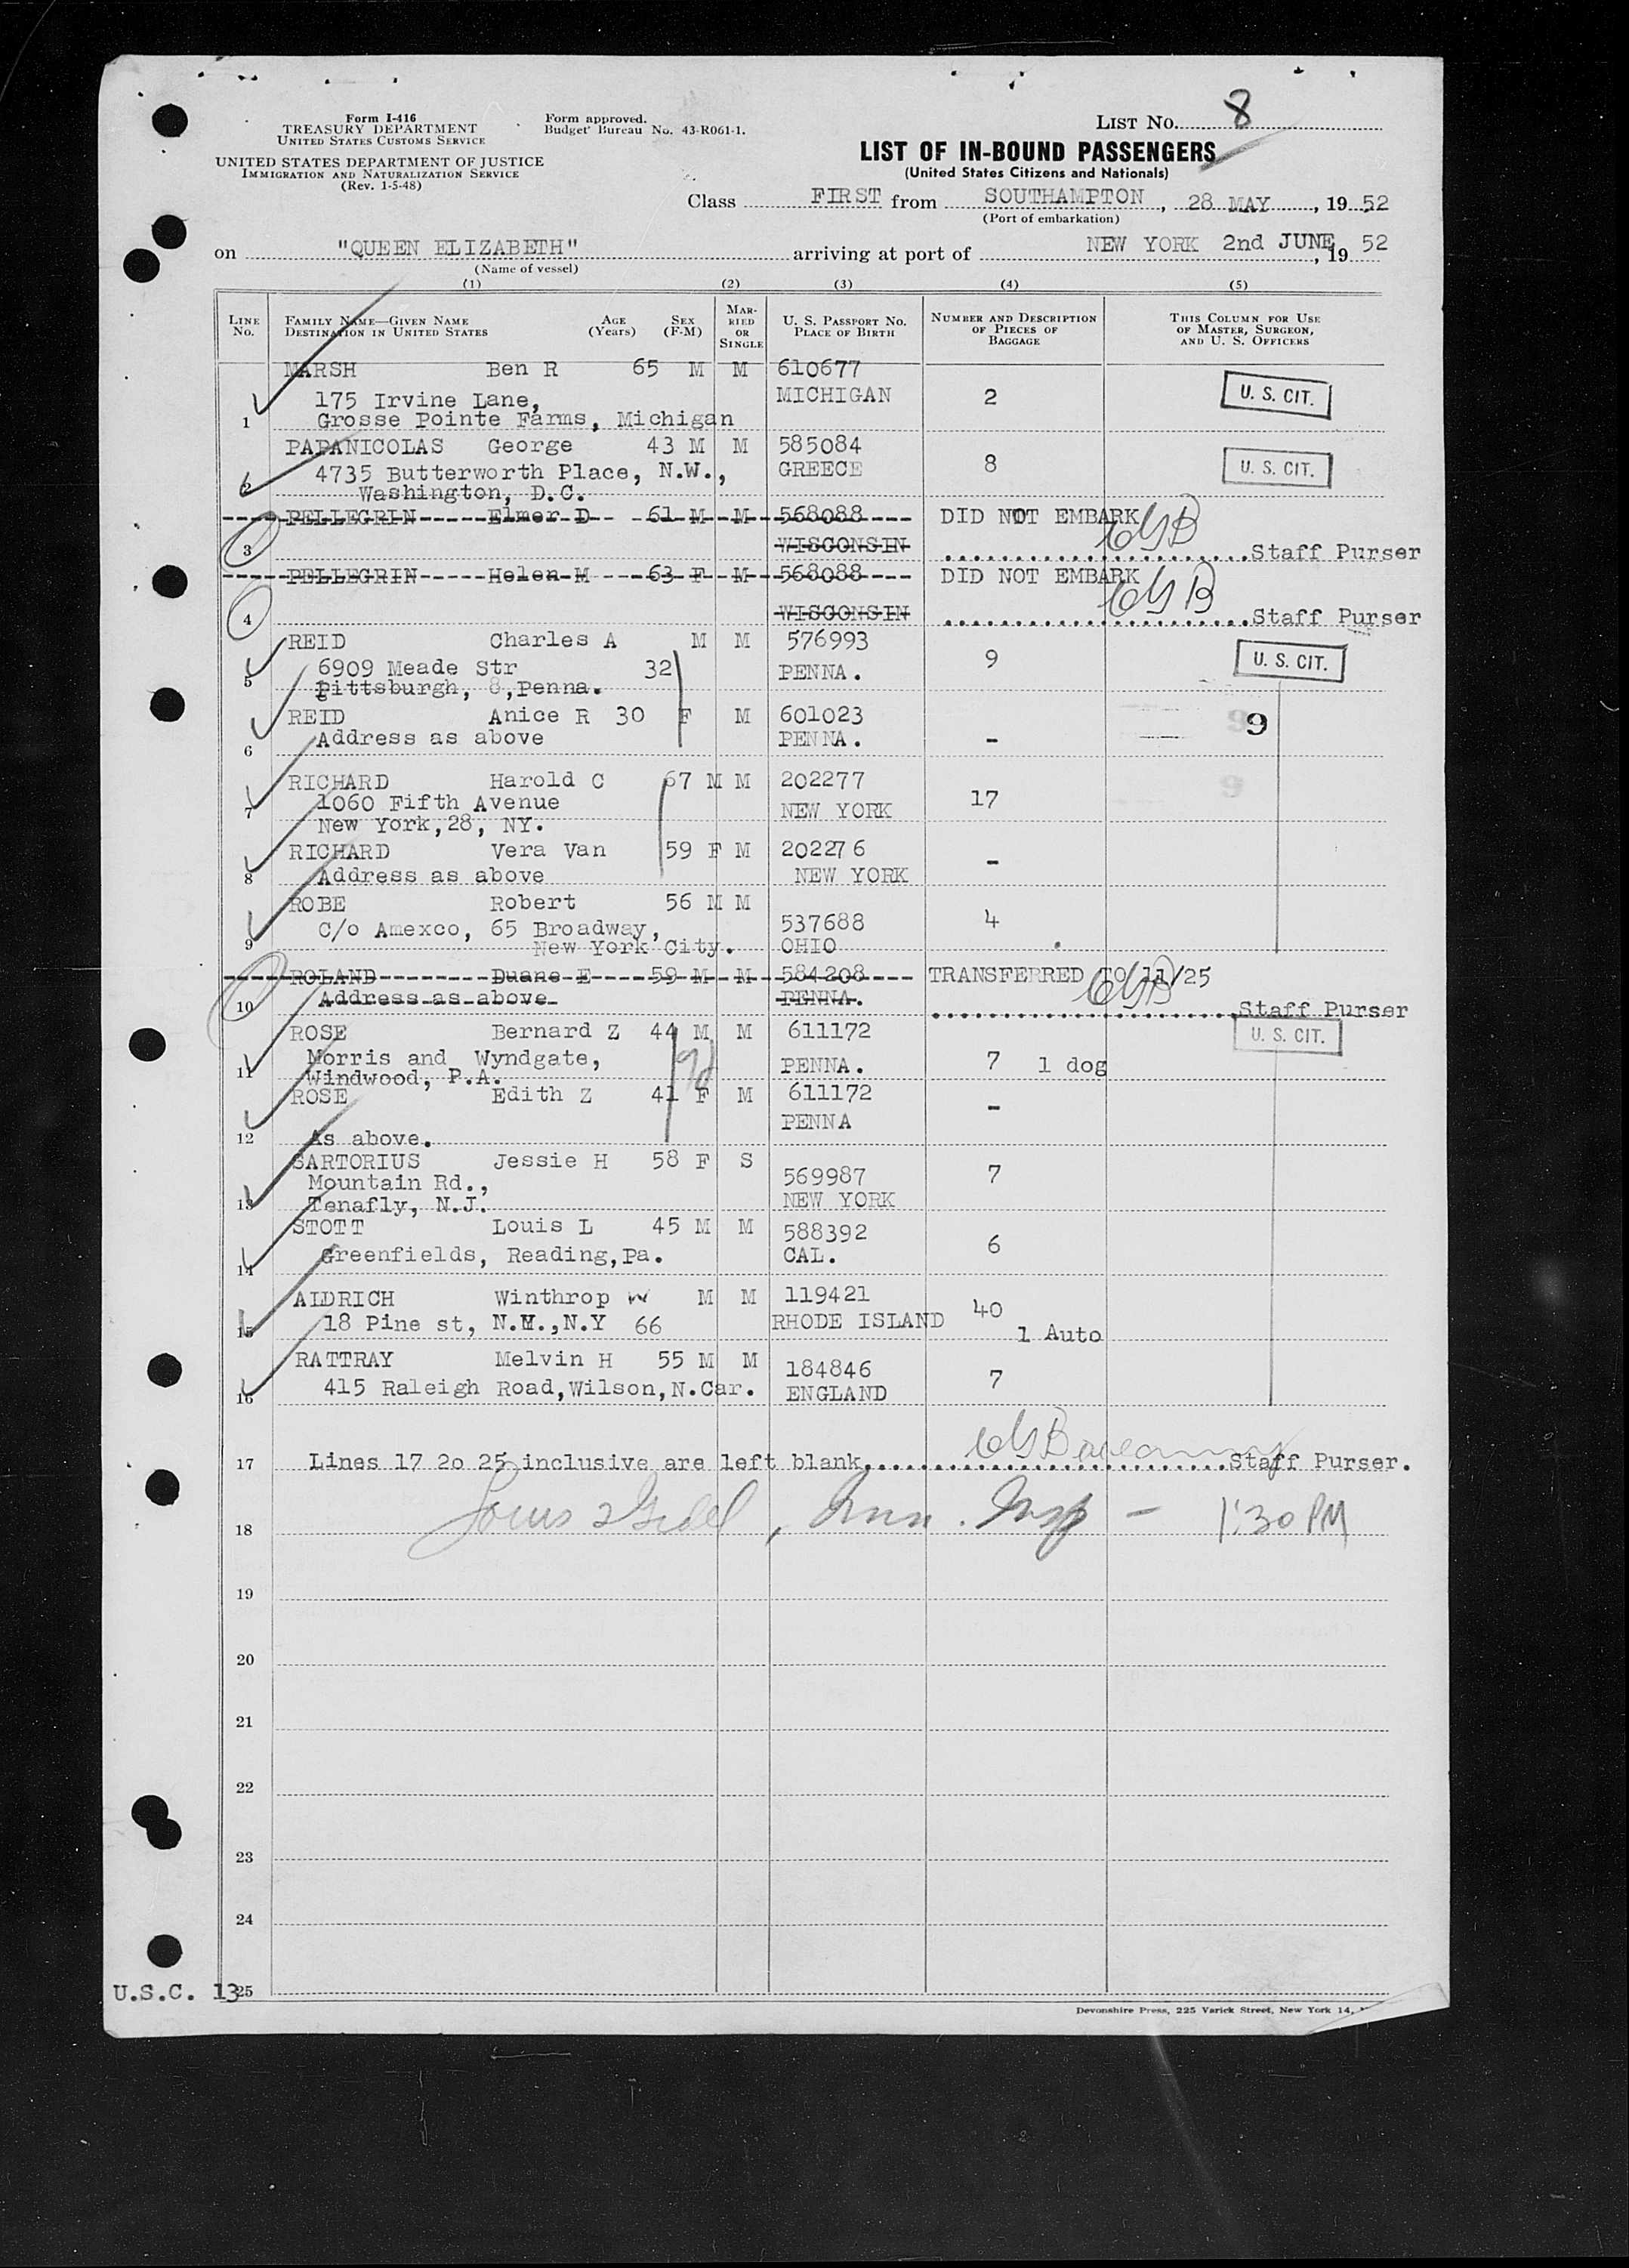 Form I-416
TREASURY DEPARTMENT
UNITED STATES CUSTOMS SERVICE
UNITED STATES DEPARTMENT OF JUSTICE
IMMIGRATION AND NATURALIZATION SERVICE
(Rev. 1-5-48)
Form approved.
Budget Bureau No. 43-R061-1.
LIST NO. 8
LIST OF IN-BOUND PASSENGERS
(United States Citizens and Nationals)
Class FIRST from SOUTHAMPTON, 28 MAY, 19 52
(Port of embarkation)
on "QUEEN ELIZABETH" arriving at port of NEW YORK 2nd JUNE, 19 52
(Name of vessel)
(1) (2) (3) (4) (5)
LINE NO. FAMILY NAME—GIVEN NAME DESTINATION IN UNITED STATES AGE (Years) SEX (F-M) MARRIED OR SINGLE U. S. PASSPORT NO. PLACE OF BIRTH NUMBER AND DESCRIPTION OF PIECES OF BAGGAGE THIS COLUMN FOR USE OF MASTER, SURGEON, AND U. S. OFFICERS
MARSH Ben R 65 M M 610677
175 Irvine Lane, MICHIGAN 2 U. S. CIT.
1 Grosse Pointe Farms, Michigan
PAPANICOLAS George 43 M M 585084
4735 Butterworth Place, N.W., GREECE 8 U. S. CIT.
2 Washington, D.C.
PELLEGRIN Elmer D 61 M M 568088 DID NOT EMBARK
3 WISCONSIN Staff Purser
PELLEGRIN Helen M 63 F M 568088 DID NOT EMBARK
4 WISCONSIN Staff Purser
REID Charles A M M 576993
5 6909 Meade Str 32 PENNA. 9 U. S. CIT.
Pittsburgh, 8,Penna.
REID Anice R 30 F M 601023 9
6 Address as above PENNA. -
RICHARD Harold C 67 M M 202277
7 1060 Fifth Avenue NEW YORK 17 9
New York,28, NY.
RICHARD Vera Van 59 F M 202276
8 Address as above NEW YORK -
ROBE Robert 56 M M
C/o Amexco, 65 Broadway, 537688 4
9 New York City. OHIO
ROLAND Duane E 59 M M 584208 TRANSFERRED TO 11/25
10 Address as above PENNA. Staff Purser
ROSE Bernard Z 44 M M 611172 U. S. CIT.
11 Morris and Wyndgate, PENNA. 7 1 dog
Windwood, P.A.
ROSE Edith Z 41 F M 611172
PENNA -
12 As above.
SARTORIUS Jessie H 58 F S
Mountain Rd., 569987 7
13 Tenafly, N.J. NEW YORK
STOTT Louis L 45 M M 588392
14 Greenfields, Reading,Pa. CAL. 6
ALDRICH Winthrop W M M 119421
15 18 Pine st, N.Y.,N.Y 66 RHODE ISLAND 40 1 Auto
RATTRAY Melvin H 55 M M 184846
16 415 Raleigh Road,Wilson,N.Car. ENGLAND 7
17 Lines 17 2o 25 inclusive are left blank. Staff Purser.
18 Imm. Insp - 1:30 PM
19
20
21
22
23
24
U.S.C. 13 25
Devonshire Press, 225 Varick Street, New York 14,